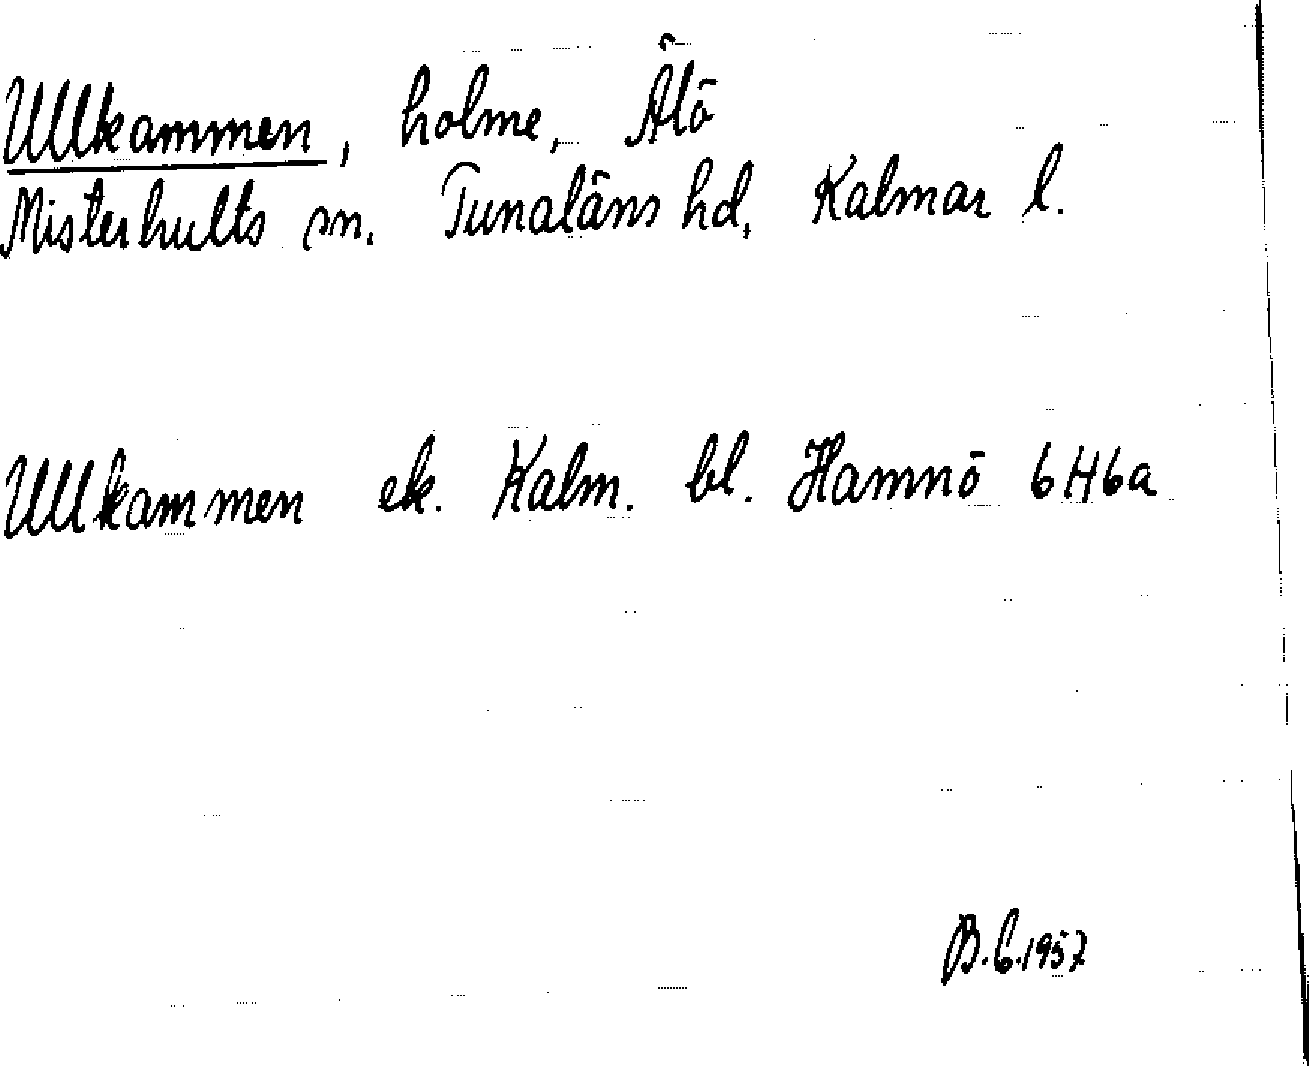 Ullkammen, holme, Älö
Misterhults sn. Tunaläns hd, Kalmar l.
Ullkammen ek. Kalm. bl. Hamnö 6H6a
B.G.1957